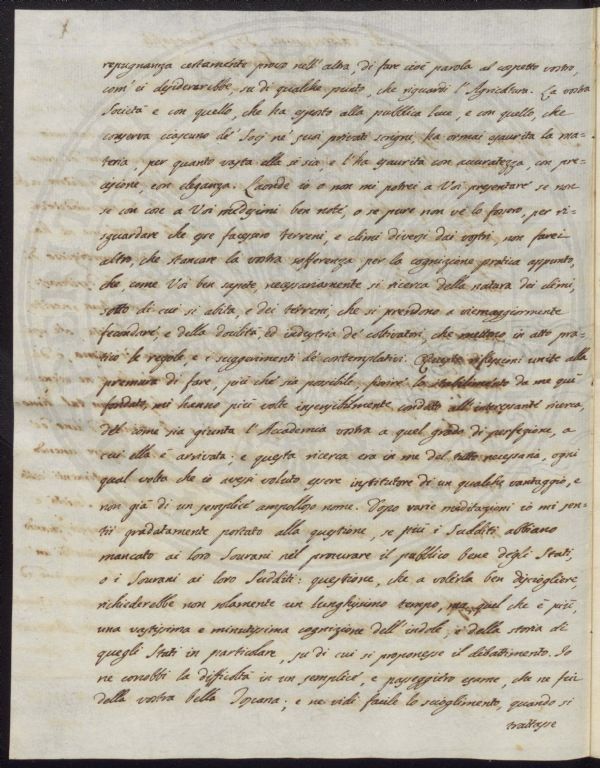 repugnanza certamente provo nell'altra, di fare cioè parola al cospetto vostro,
com'ei desiderarebbe, su di qualche punto, che riguardi l'Agricoltura. La vostra
Società e con quello, che ha esposto alla pubblica luce, e con quello, che
conserva ciascuno de' Socj ne' suoi privati scrigni, ha ormai esaurita la ma=
teria, per quanto vasta ella si sia, e l'ha esaurita con accuratezza, con pre=
cisione, con eleganza. Laonde io o non mi potrei a Voi presentare se non
se con cose a Voi medesimi ben note, o se pure non ve lo fossero, per ri=
sguardare che esse facessero terreni, e climi diversi dai vostri, non farei
altro, che stancare la vostra sofferenza per la cognizione pratica appunto,
che come Voi ben sapete, necessariamente si ricerca della natura dei climi,
sotto di cui si abita, e dei terreni, che si prendono a viemaggiormente
fecondare, e della docilità, ed industria de' coltivatori, che mettono in atto pra=
tico le regole e i suggerimenti de' contemplativi. Queste riflessioni unite alla
premura di fare, più che sia possibile, fiorire lo stabilimento da me quì
fondato, mi hanno più volte insensibilmente condotto all'interessante ricerca,
del come sia giunta l'Accademia vostra a quel grado di perfezione, a
cui ella è arrivata; e questa ricerca era in me del tutto necessaria, ogni
qual volta che io avessi voluto essere institutore di un qualche vantaggio, e
non già di un semplice ampolloso nome. Dopo varie meditazioni io mi sen=
tii gradatamente portato alla questione, se più i Sudditi abbiano
mancato ai loro Sovrani nel procurare il pubblico bene degli Stati,
o i Sovrani ai loro Sudditi: questione, che a volerla ben disciogliere
richiederebbe non solamente un lunghissimo tempo, ma quel che è più,
una vastissima e minutissima cognizione dell'indole, e della storia di
quegli Stati in particolare, su di cui si proponesse il dibattimento. Io
ne conobbi la difficoltà in un semplice, e passeggiero esame, che ne feci
della vostra bella Toscana; e ne vidi facile lo scioglimento, quando si
trattasse